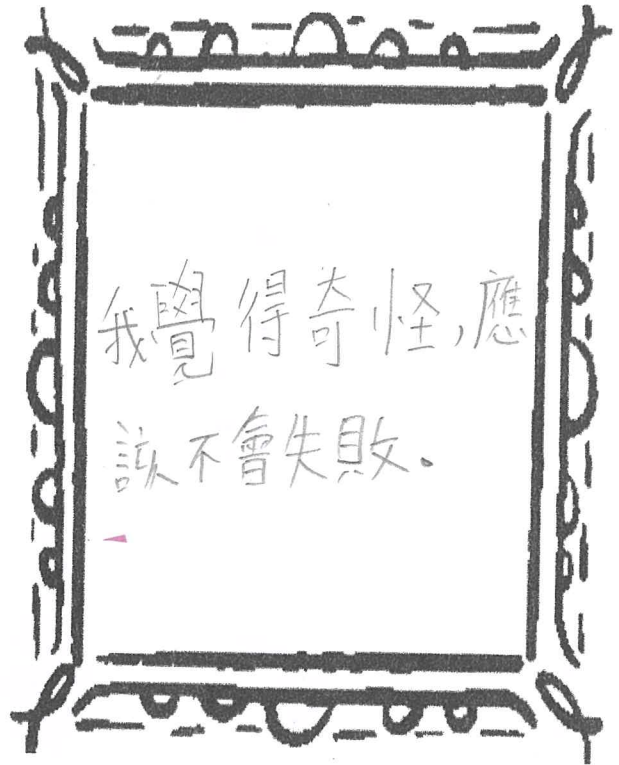 我覺得奇怪,應
該不會失敗.